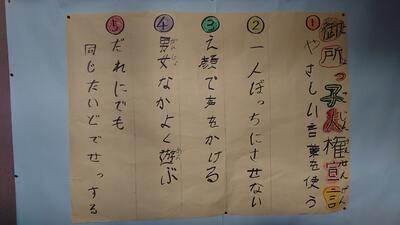 御所っ子人権宣言
① やさしい言葉を使う
② 一人ぼっちにさせない
③ え顔で声をかける
④ 男女なかよく遊ぶ
⑤ だれにでも
同じたいどでせっする